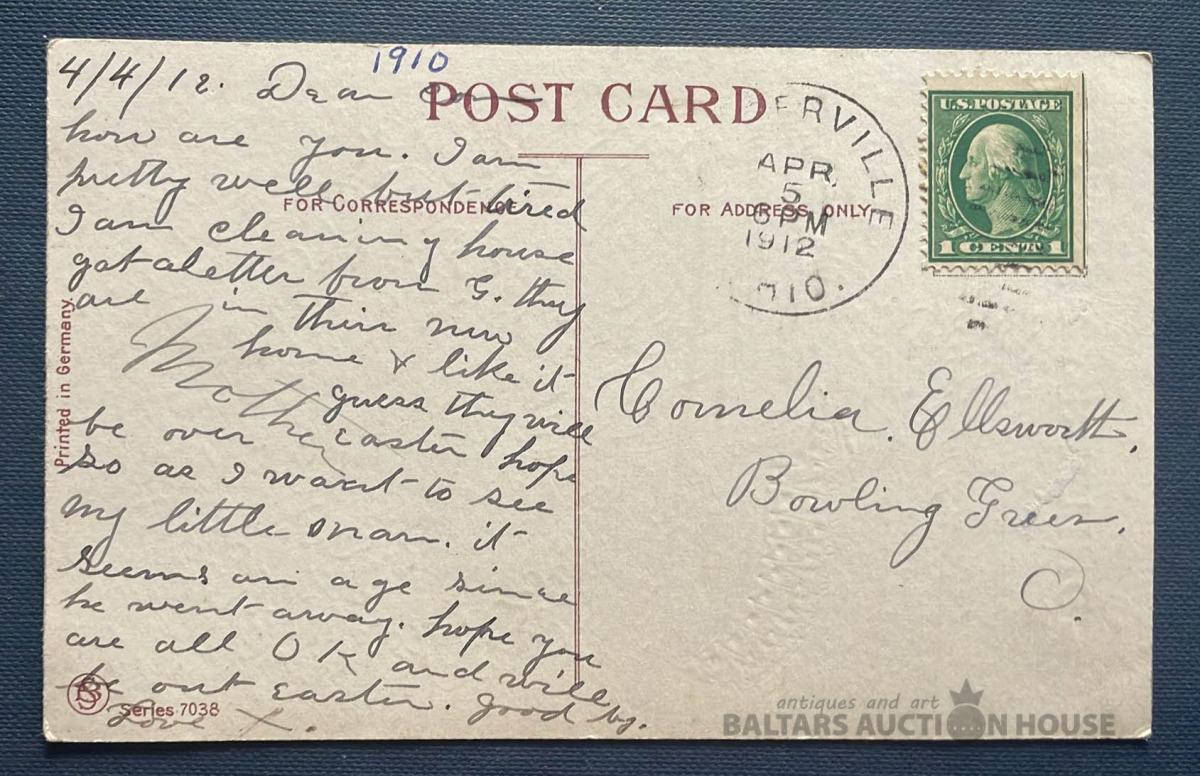 1910
4/4/12. Dear
POST CARD
how are you. I am
pretty well but tired
FOR CORRESPONDENCE
I am cleaning house
got a letter from G. they
are in their new
home & like it
guess they will
Mother
be over Easter hope
so as I want to see
my little man. it
seems an age since
he went away. hope you
are all OK and will
be out Easter. Good by.
Love X.
Printed in Germany.
Series 7038
FOR ADDRESS ONLY
ERVILLE
APR.
5
PM
1912
HIO.
U.S. POSTAGE
1 CENT 1
Cornelia Ellsworth,
Bowling Green,
O.
antiques and art
BALTARS AUCTION HOUSE